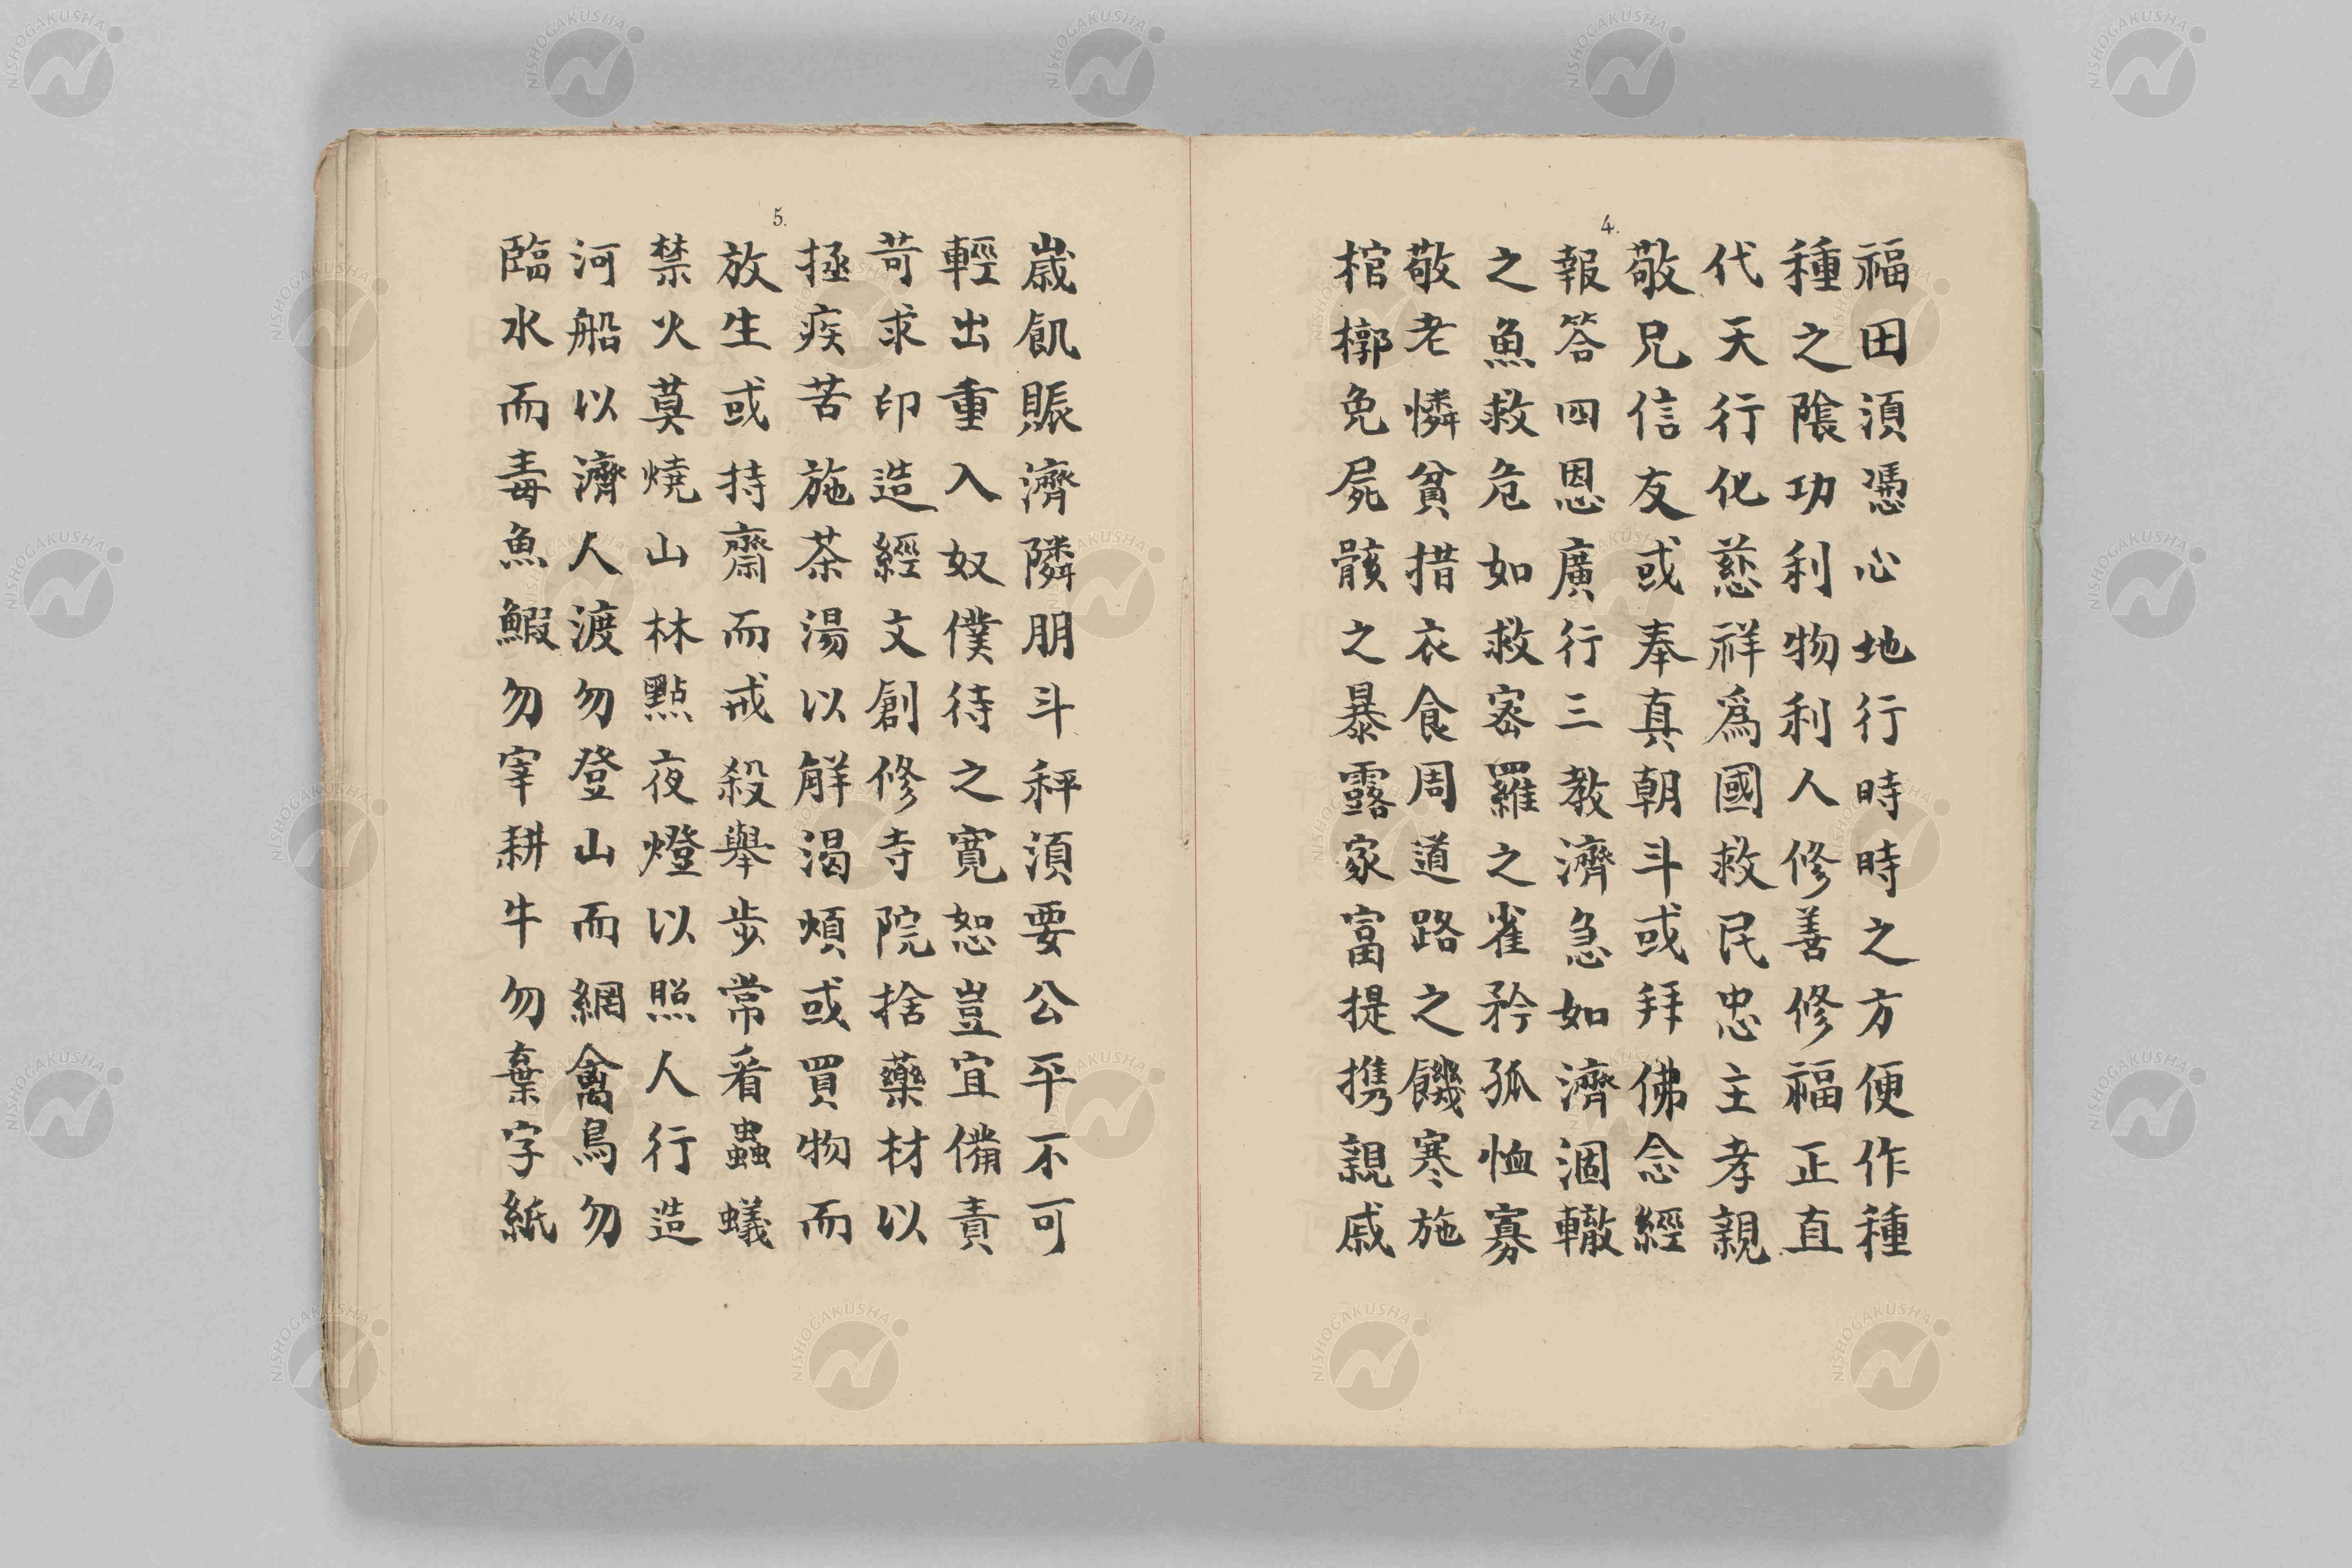 4.
福田須憑心地行時時之方便作種
種之隂功利物利人修善修福正直
代天行化慈祥爲國救民忠主孝親
敬兄信友或奉真朝斗或拜佛念經
報答四恩廣行三教濟急如濟涸轍
之魚救危如救宻羅之雀矜孤恤寡
敬老憐貧措衣食周道路之饑寒施
棺槨免屍骸之暴露家富提携親戚
5.
歲飢賑濟隣朋斗秤須要公平不可
輕出重入奴僕待之寛恕豈宜備責
苛求印造經文創修寺院捨藥材以
拯疾苦施茶湯以觧渴煩或買物而
放生或持齋而戒殺舉步常看蟲蟻
禁火莫燒山林點夜燈以照人行造
河船以濟人渡勿登山而網禽鳥勿
臨水而毒魚鰕勿宰耕牛勿棄字紙
NISHOGAKUSHA